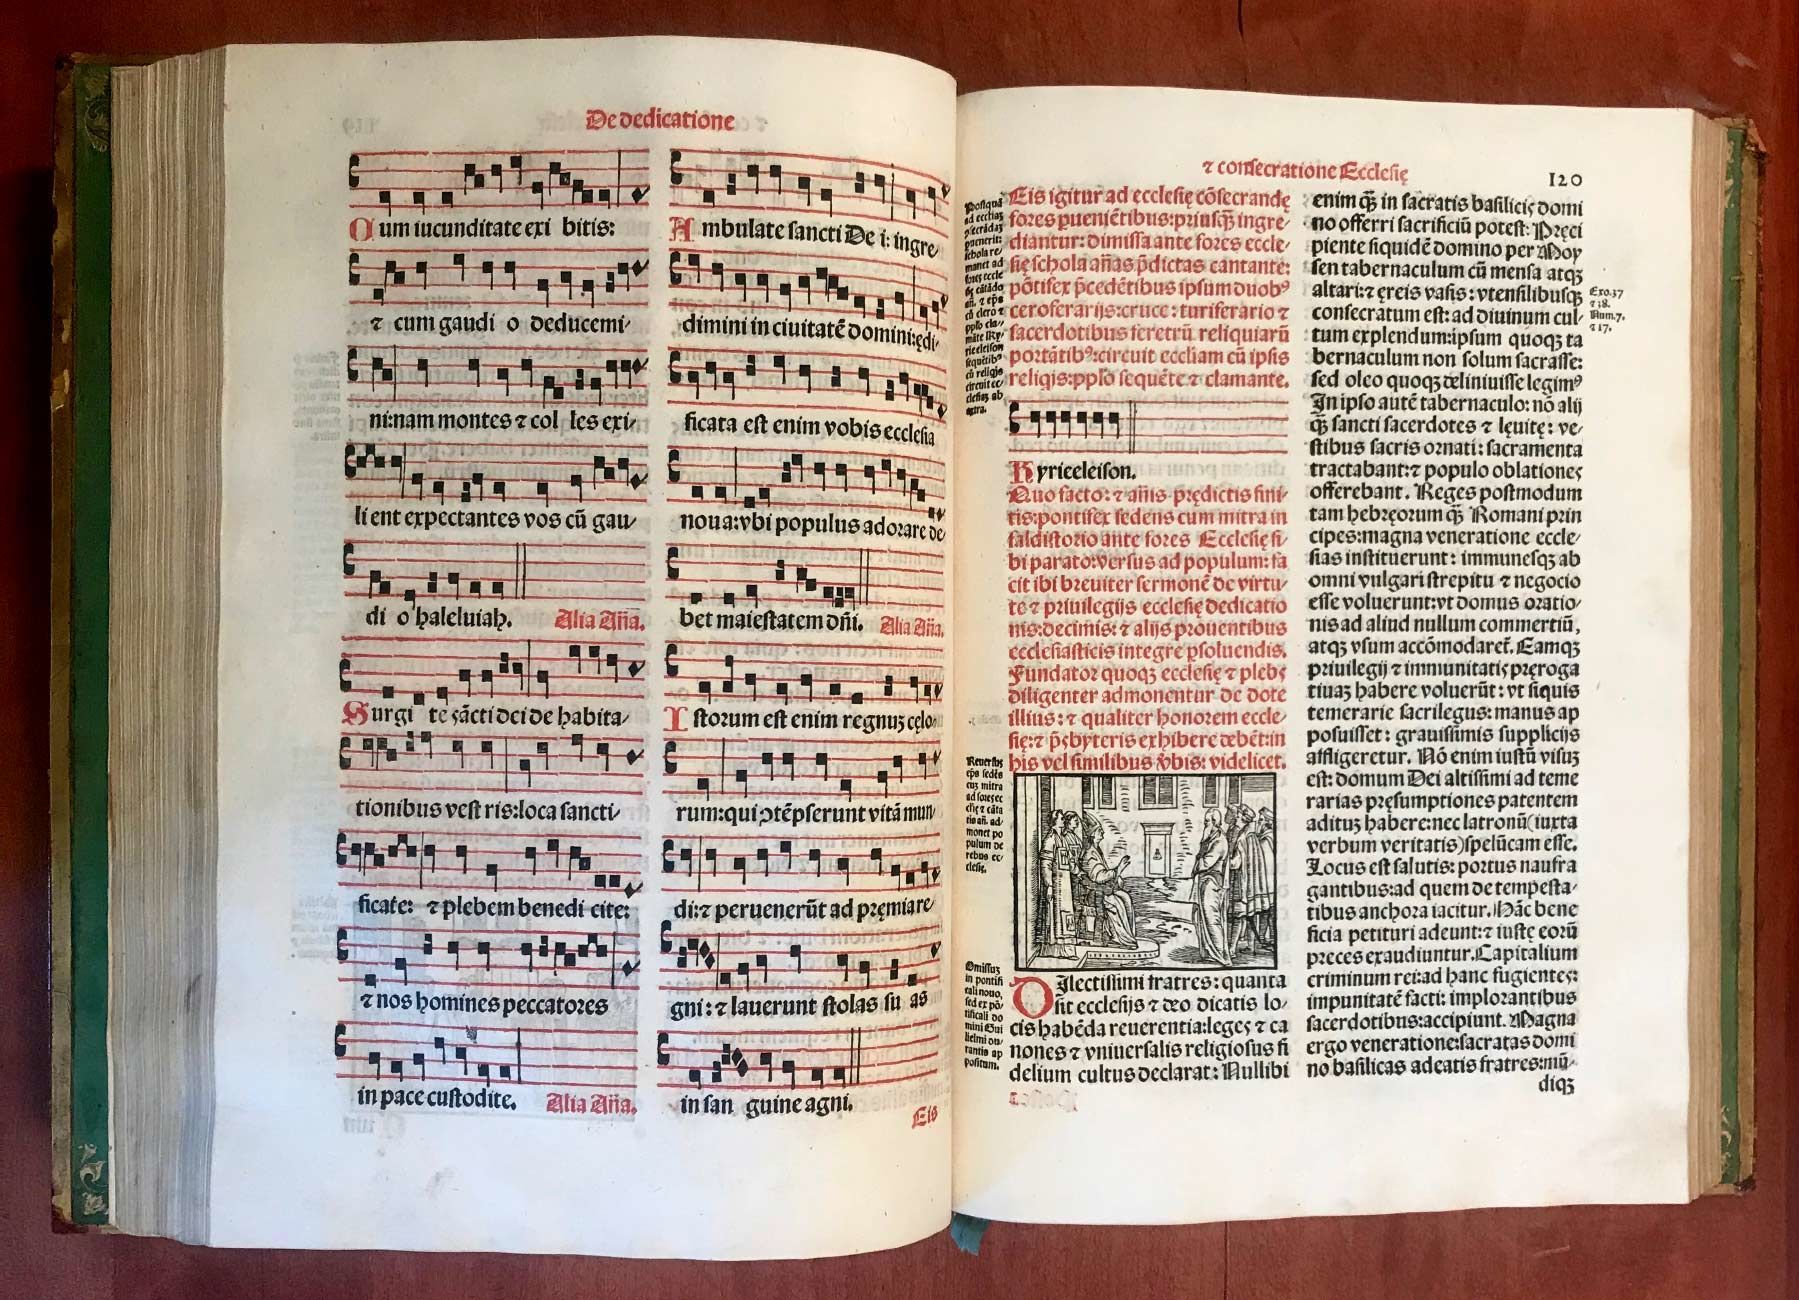 De dedicatione
Cum iucunditate exi bitis:
⁊ cum gaudi o deducemi⸗
ni:nam montes ⁊ col les exi⸗
li ent expectantes vos cũ gau⸗
di o haleluiah. Alia Añа.
Surgi te sãcti dei de habita⸗
tionibus vest ris:loca sancti⸗
ficate: ⁊ plebem benedi cite:
⁊ nos homines peccatores
in pace custodite. Alia Aña.
Ambulate sancti De i: ingre⸗
dimini in ciuitatẽ domini:ędi⸗
ficata est enim vobis ecclesia
noua:vbi populus adorare de⸗
bet maiestatem dñi. Alia Aña.
Istorum est enim regnuꝫ cęlo⸗
rum:qui ↄtẽpserunt vitã mun⸗
di:⁊ peruenerũt ad pręmia re⸗
gni: ⁊ lauerunt stolas su as
in san guine agni.
Eis
⁊ consecratione Ecclesię
120
Eis igitur ad ecclesię cõsecrandę
fores ꝑueniẽtibus:priusꝗ̃ ingre⸗
diantur: dimissa ante fores eccle⸗
się schola añas p̃dictas cantante:
põtifex p̃cedẽtibus ipsum duobꝰ
ceroferarijs:cruce: turiferario ⁊
sacerdotibus feretrũ reliquiarũ
portãtibꝰ:circuit eccliam cũ ipsis
religis:ppl̃o sequẽte ⁊ clamante.
Kyrieeleison.
Quo facto: ⁊ añis prędictis fini⸗
tis:pontifex sedens cum mitra in
faldistorio ante fores Ecclesię si⸗
bi parato:versus ad populum: fa
cit ibi breuiter sermonẽ de virtu⸗
te ⁊ priuilegijs ecclesię dedicatio
nis:decimis: ⁊ alijs prouentibus
ecclesiasticis integre ꝑsoluendis.
Fundator quoqꝫ ecclesię ⁊ plebs
diligenter admonentur de dote
illius: ⁊ qualiter honorem eccle⸗
się:⁊ p̃sbyteris exhibere debẽt:in
his vel similibus v̾bis: videlicet.
Dilectissimi fratres: quanta
sit ecclesijs ⁊ deo dicatis lo⸗
cis habẽda reuerentia:leges ⁊ ca
nones ⁊ vniuersalis religiosus fi
delium cultus declarat: Nullibi
Postquã
ad ecclĩaꝫ
ꝯsecrãdaꝫ
puenerit:
schola re⸗
manet ad
fores eccle
się cãtãdo
añ. ⁊ ep̃s
cũ clero ⁊
ppl̃o cla⸗
mãte Ky⸗
rieeleison
sequẽtibꝰ
cũ reliqijs
circuit ec⸗
clesiaꝫ ab
extra.
Reuersus
ep̃s sedẽs
cuꝫ mitra
ad fores ec
clię ⁊ cãta
tis añ. ad⸗
monet po
pulum de
rebus ec⸗
clesię.
Omissuꝫ
in pontifi
cali nouo,
sed ex põ⸗
tificali do
mini Gui
lielmi du⸗
rantis ap
positum.
enim ꝗ̃ in sacratis basilicis domi
no offerri sacrificiũ potest: Pręci
piente siquidẽ domino per Moy
sen tabernaculum cũ mensa atqꝫ
altari:⁊ ęreis vasis: vtensilibusqꝫ
consecratum est: ad diuinum cul⸗
tum explendum:ipsum quoqꝫ ta
bernaculum non solum sacrasse:
sed oleo quoqꝫ deliniuisse legimꝰ
In ipso autẽ tabernaculo: nõ alij
ꝗ̃ sancti sacerdotes ⁊ lęuitę: ve⸗
stibus sacris ornati: sacramenta
tractabant:⁊ populo oblationes
offerebant. Reges postmodum
tam hebręorum ꝗ̃ Romani prin
cipes:magna veneratione eccle⸗
sias instituerunt: immunesqꝫ ab
omni vulgari strepitu ⁊ negocio
esse voluerunt:vt domus oratio⸗
nis ad aliud nullum commertiũ,
atqꝫ vsum accõmodaret. Eamqꝫ
priuilegij ⁊ immunitatis pręroga
tiuaꝫ habere voluerũt: vt siquis
temerarie sacrilegus: manus ap
posuisset: grauissimis supplicijs
affligeretur. Nõ enim iustũ visuꝫ
est: domum Dei altissimi ad teme
rarias pręsumptiones patentem
adituꝫ habere:nec latronũ(iuxta
verbum veritatis)spelũcam esse.
Locus est salutis: portus naufra
gantibus:ad quem de tempesta⸗
tibus anchora iacitur. Hãc bene
ficia petituri adeunt:⁊ iustę eorũ
preces exaudiuntur. Capitalium
criminum rei:ad hanc fugientes:
impunitatẽ facti: implorantibus
sacerdotibus:accipiunt. Magna
ergo veneratione:sacratas domi
no basilicas adeatis fratres:mũ⸗
diqꝫ
Exo.37
⁊ 38.
Num.7.
⁊ 17.